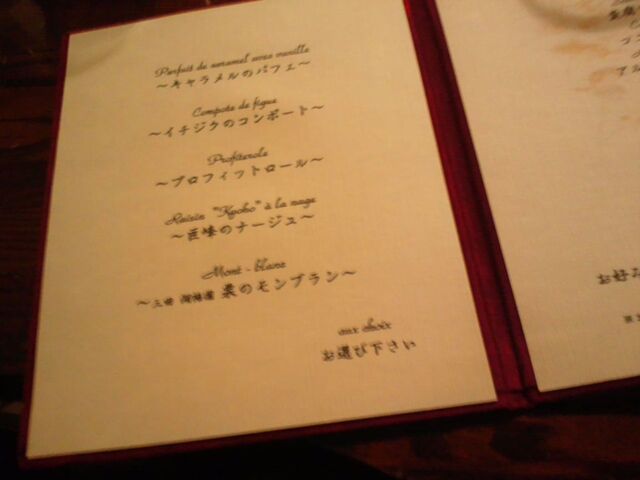 Parfait de caramel avec vanille
～キャラメルのパフェ～
Compote de figue
～イチジクのコンポート～
Profiterole
～プロフィットロール～
Raisin "Kyoho" à la nage
～巨峰のナージュ～
Mont-blanc
栗のモンブラン～
aux choix
お選び下さい
お好み